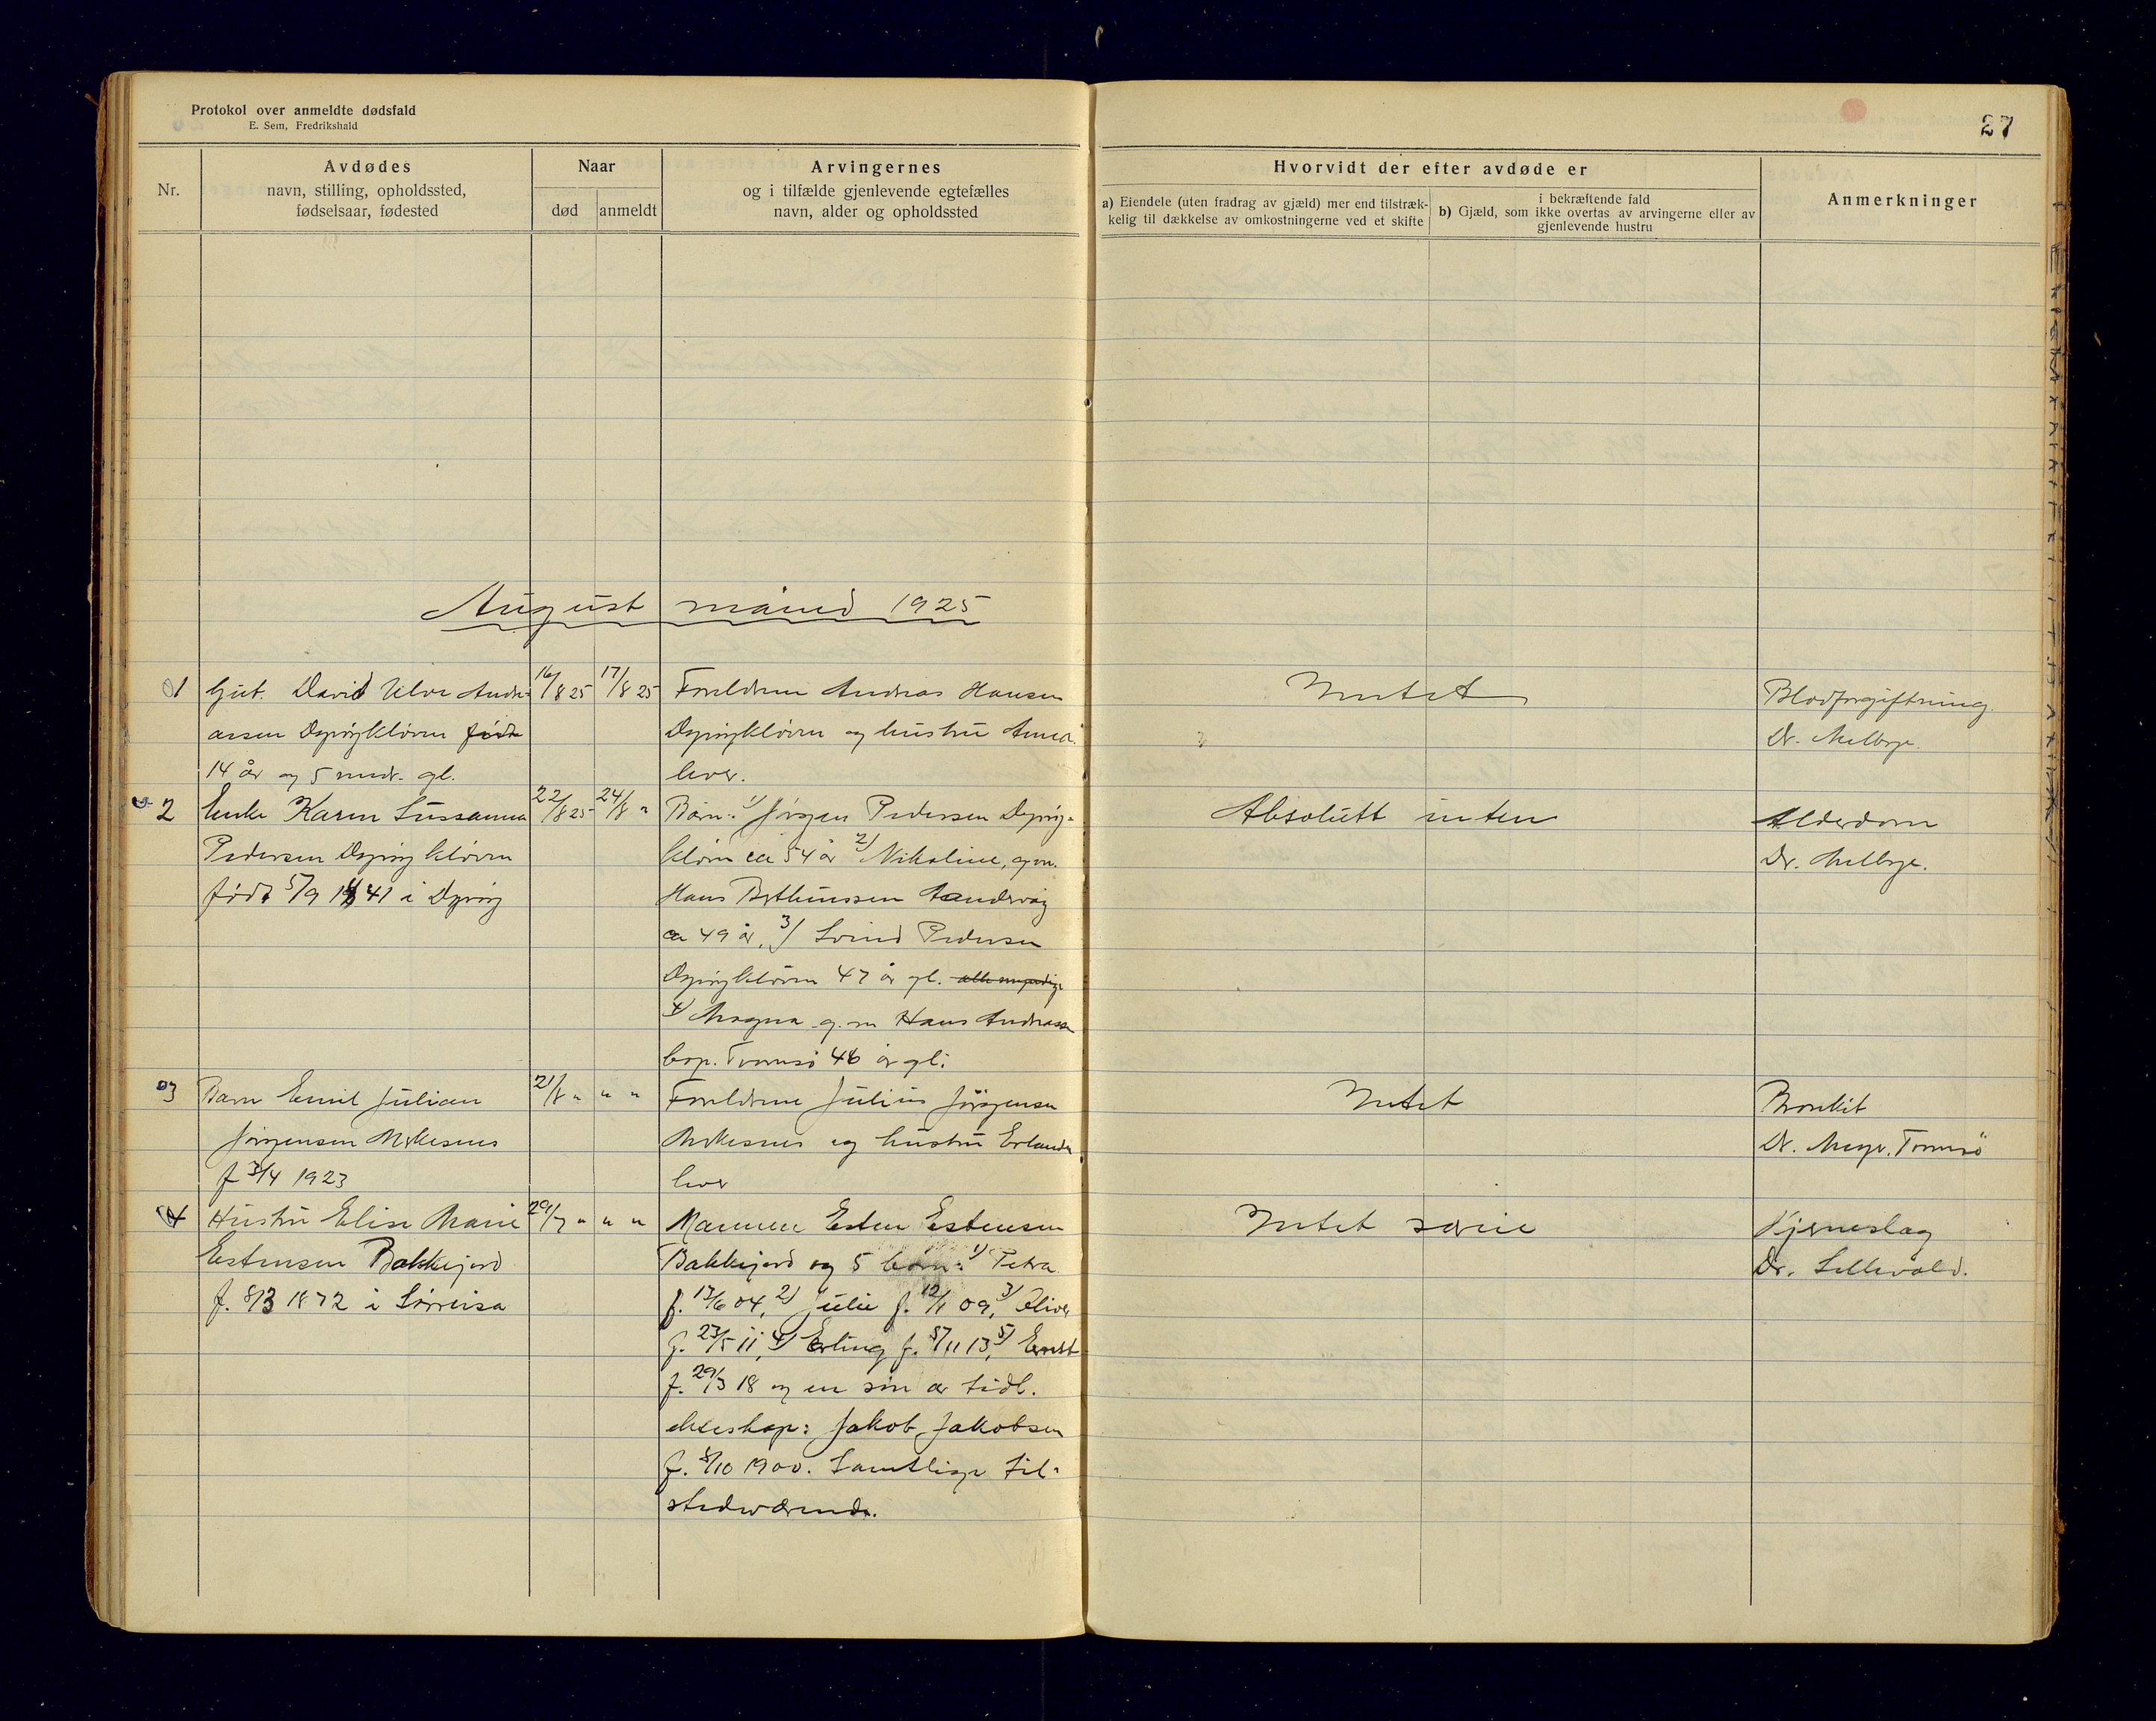 Protokol over anmeldte dødsfald
E. Sem, Fredrikshald
27
Nr.
Avdødes
navn, stilling, opholdssted,
fødselsaar, fødested
Naar
død anmeldt
Arvingernes
og i tilfælde gjenlevende egtefælles
navn, alder og opholdssted
Hvorvidt der efter avdøde er
a) Eiendele (uten fradrag av gjæld) mer end tilstræk-
kelig til dækkelse av omkostningerne ved et skifte
i bekræftende fald
b) Gjæld, som ikke overtas av arvingerne eller av
gjenlevende hustru
Anmerkninger
August måned 1925
1 Gut. David Andre- 16/8 25 17/8 25 Foreldrene Andreas Hansen Intet Blodforgiftning
assen Dyrøykløven født Dyrøykløven og hustru Anna Dr. Melbye.
14 år og 5 mndr. gl. lever.
2 Enke Karen Sussanna 22/8 25 24/8 " Børn: 1) Jørgen Pedersen Dyrøy- Absolutt inten Alderdom
Pedersen Dyrøykløven kløven ca 54 år 2) Nikoline, g.m. Dr. Melbye.
født 5/9 1841 i Dyrøy Hans Berthinussen
ca 49 år, 3) Pedersen
Dyrøykløven 47 år gl. alle myndige
4) Magna g.m Hans Andreassen
bop. Tromsø 46 år gl.
3 Barn Emil Julian 21/8 " " " Foreldrene Julius Jørgensen Intet Bronkit
Jørgensen og hustru Erlanda Dr. Meyer. Tromsö
f 3/4 1923 lever
4 Hustru Elise Marie 29/7 " " " Mannen Esten Estensen Intet særeie Hjerneslag
Estensen Bakkejord Bakkejord og 5 børn: 1) Petra Dr. Lillevold.
f. 8/3 1872 i Sørreisa f. 13/6 04, 2) Julie f. 12/1 09, 3) Oliver
f. 23/5 11, 4) Erling f. 5/11 13, 5) Ernst
f. 29/3 18 og en søn av tidl.
ekteskap: Jakob Jakobsen
f. 8/10 1900. Samtlige til-
stedeværende.